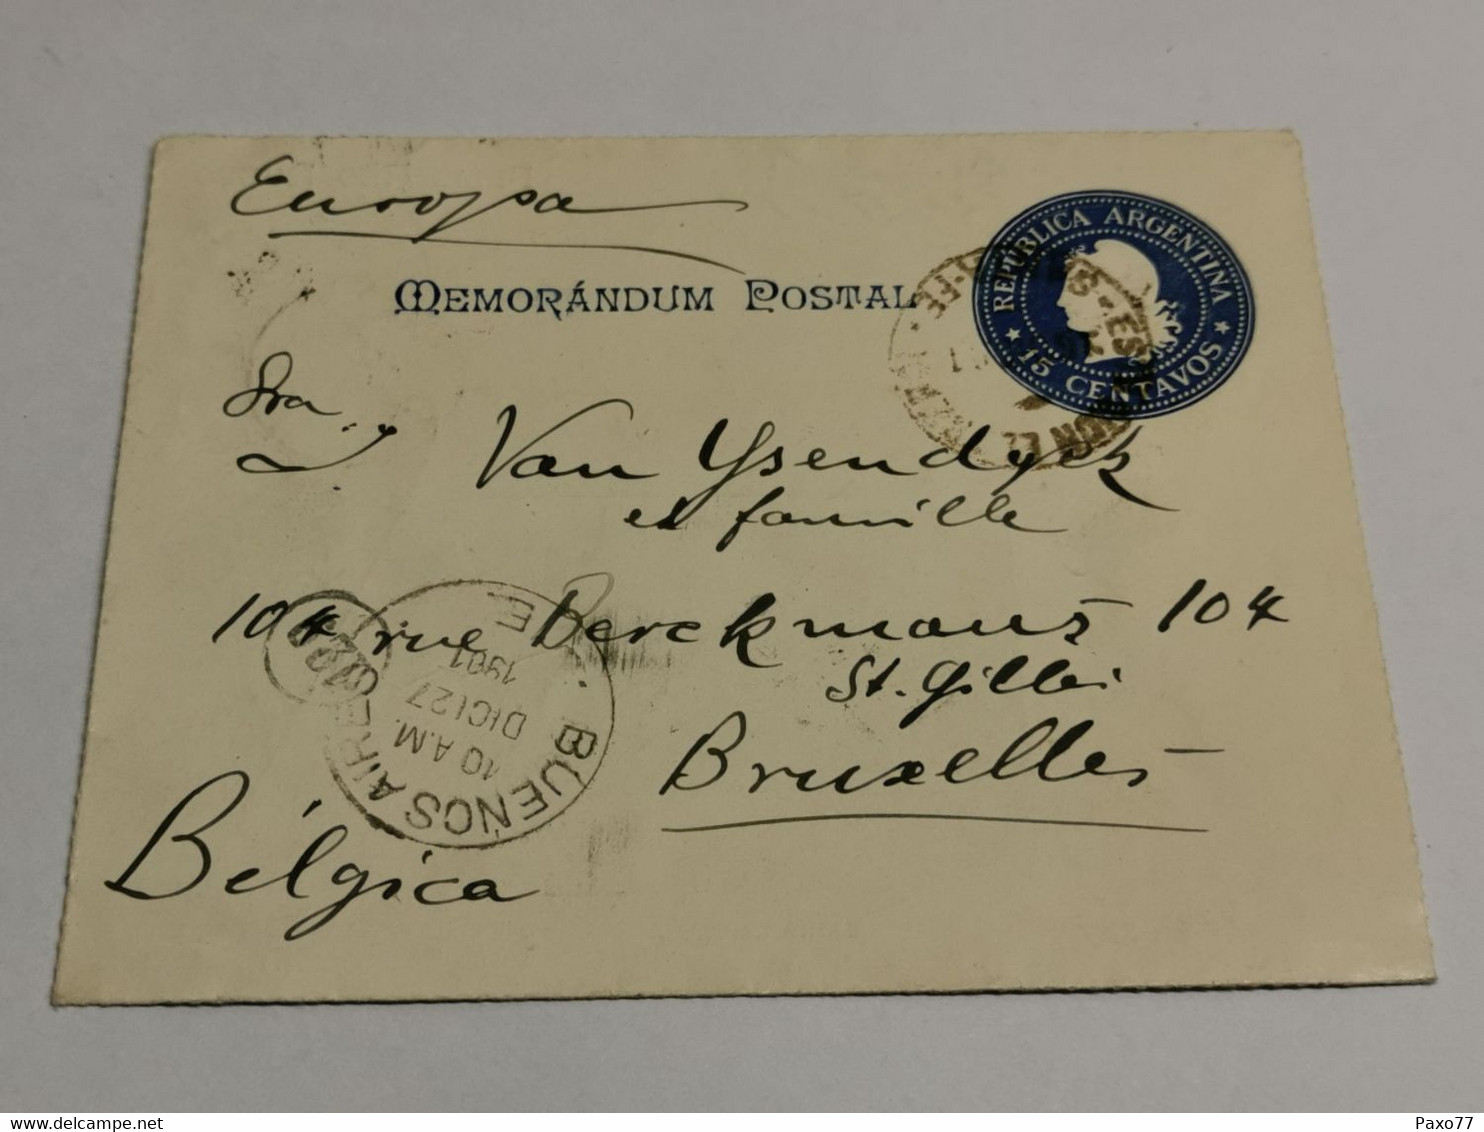 Europa
MEMORÁNDUM POSTAL
REPÚBLICA ARGENTINA
15 CENTAVOS
Sra.
Van Ysendyck
et famille
104 rue Berckmans 104
St. Gilles
Bruxelles
Bélgica
BUENOS AIRES
10 A.M.
DICI 27
1901
E
delcampe.net
Paxo77